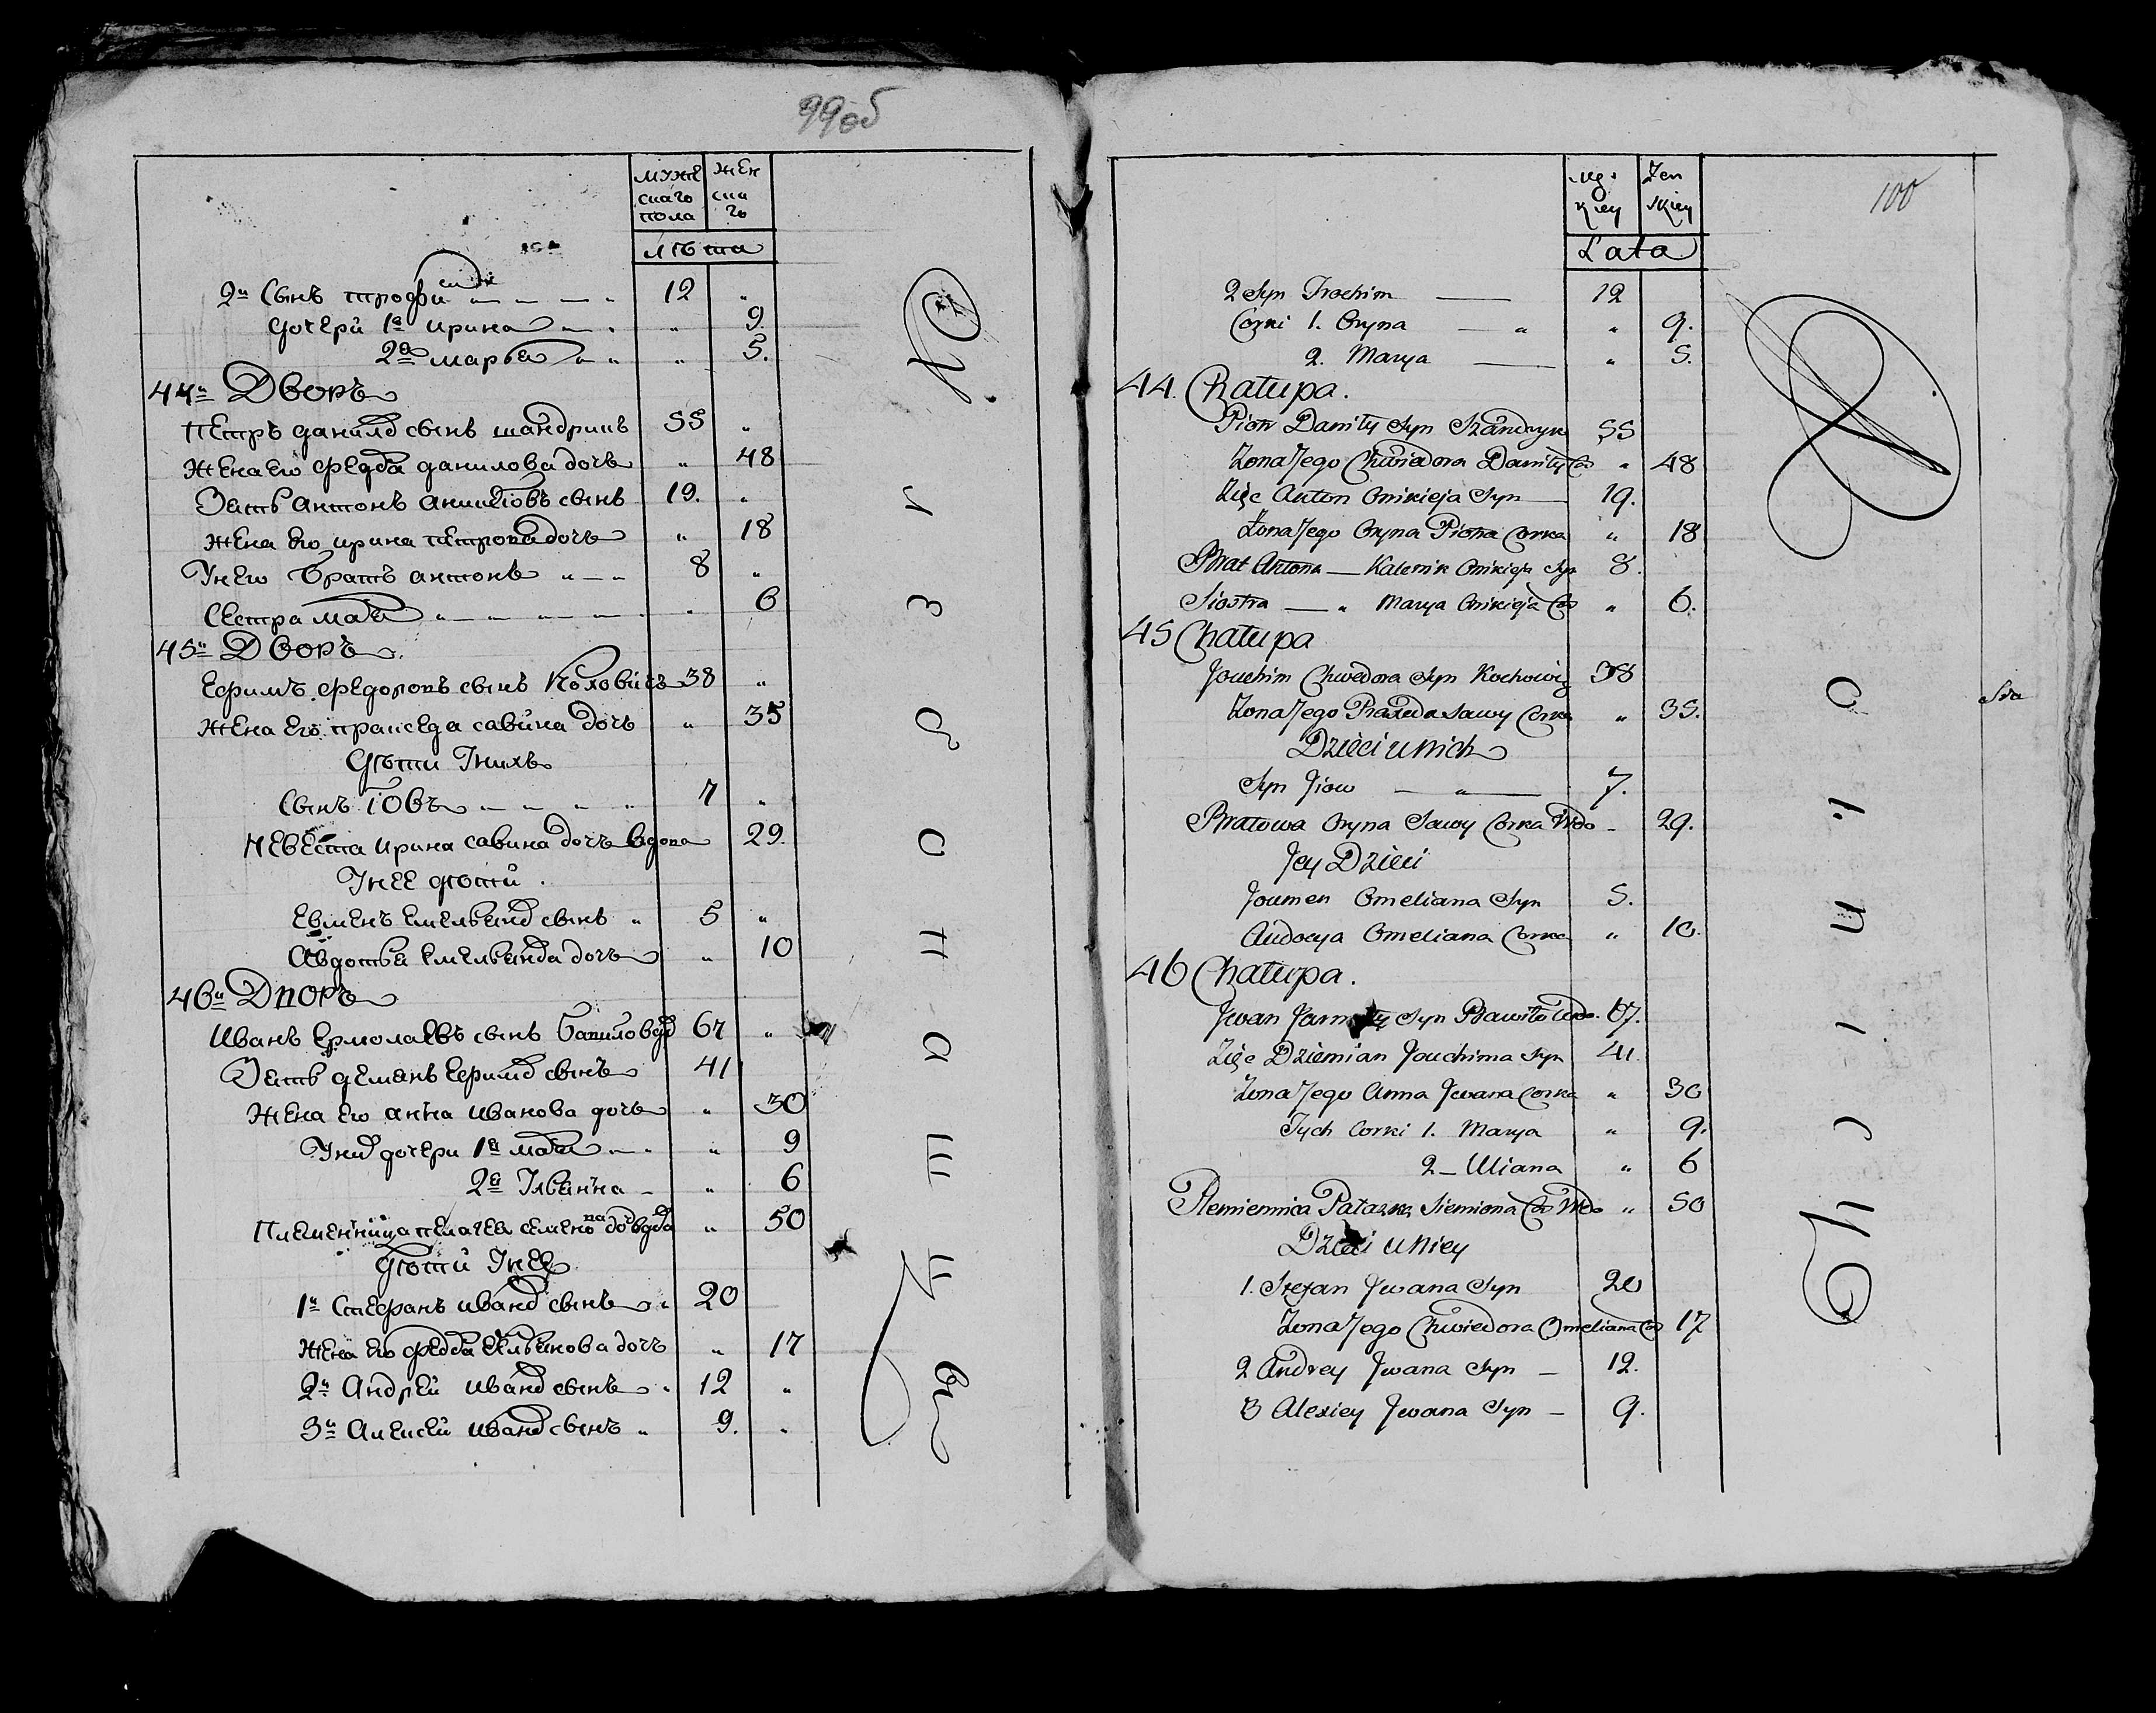 99об
муже
скаго
пола
жен
ска
го
лѣта
2й Сынъ трофим 12 „
дочери 1я ирина „ 9.
2я марья „ 5.
44й Дворъ
Петръ данилов сынъ шандрикъ 55 „
жена его федося данилова дочь „ 48
Зять антонъ аникіовъ сынъ 19. „
жена его ирина петрова дочь „ 18
У него братъ антонъ 8 „
Сестра „ 6
45й Дворъ
Ефимъ федоровъ сынъ Коховичъ 38 „
жена его пракседа савина дочь „ 35
дѣти у нихъ
Сынъ Іовъ 7 „
невѣста ирина савина дочь вдова 29.
У нее дѣти
Евменъ емельянов сынъ 5 „
Авдотья емельянова дочь „ 10
46й Дворъ
Иванъ Ермолаевъ сынъ 67 „
Зять демянъ Ефимов сынъ 41
жена его анна иванова дочь „ 30
У них дочери 1я „ 9
2я Ульянна „ 6
Племенница пелагея семенова до вдова „ 50
дѣти у нее
1й Стефанъ иванов сынъ 20
жена его федося емельянова дочь „ 17
2й Андрей иванов сынъ 12 „
3й Алексей иванов сынъ 9. „
100
Męz
kiey
Żen
skiey
Lata
2 Syn Trochim 12
Corki 1. Oryna „ „ 9.
2. Marya „ 5.
44. Chałupa.
Piotr Daniły Syn Szandryk 55
Żona Jego Chwiedora Daniły Cor „ 48
Zięc Anton Onikieja Syn 19.
Żona Jego Oryna Piotra Corka „ 18
Brat Antona Kalenik Onikieja Syn 8.
Siostra „ Marya Onikieja Cor „ 6.
45 Chałupa
Jouchim Chwedora Syn Kochowicz 38
Żona Jego Praxeda Sawy Corka „ 35.
Dzieci u Nich
Syn Jiow „ 7.
Bratowa Oryna Sawy Corka Wdo 29.
Jey Dzieci
Joumen Omeliana Syn 5.
Audocya Omeliana Corka „ 10.
46 Chałupa.
Jwan Jarmoły Syn Wdo. 67.
Zięc Dziemian Jouchima Syn 41.
Żona Jego Anna Jwana Corka „ 30
Tych Corki 1. Marya „ 9.
2 Uliana „ 6
Plemiennica Pałazka Siemiona Cor Wdo „ 50
Dzieci u Niey
1. Stefan Jwana Syn 20
Żona Jego Chwiedora Omeliana Cor 17
2 Andrey Jwana Syn 12.
3 Alexiey Jwana Syn 9.